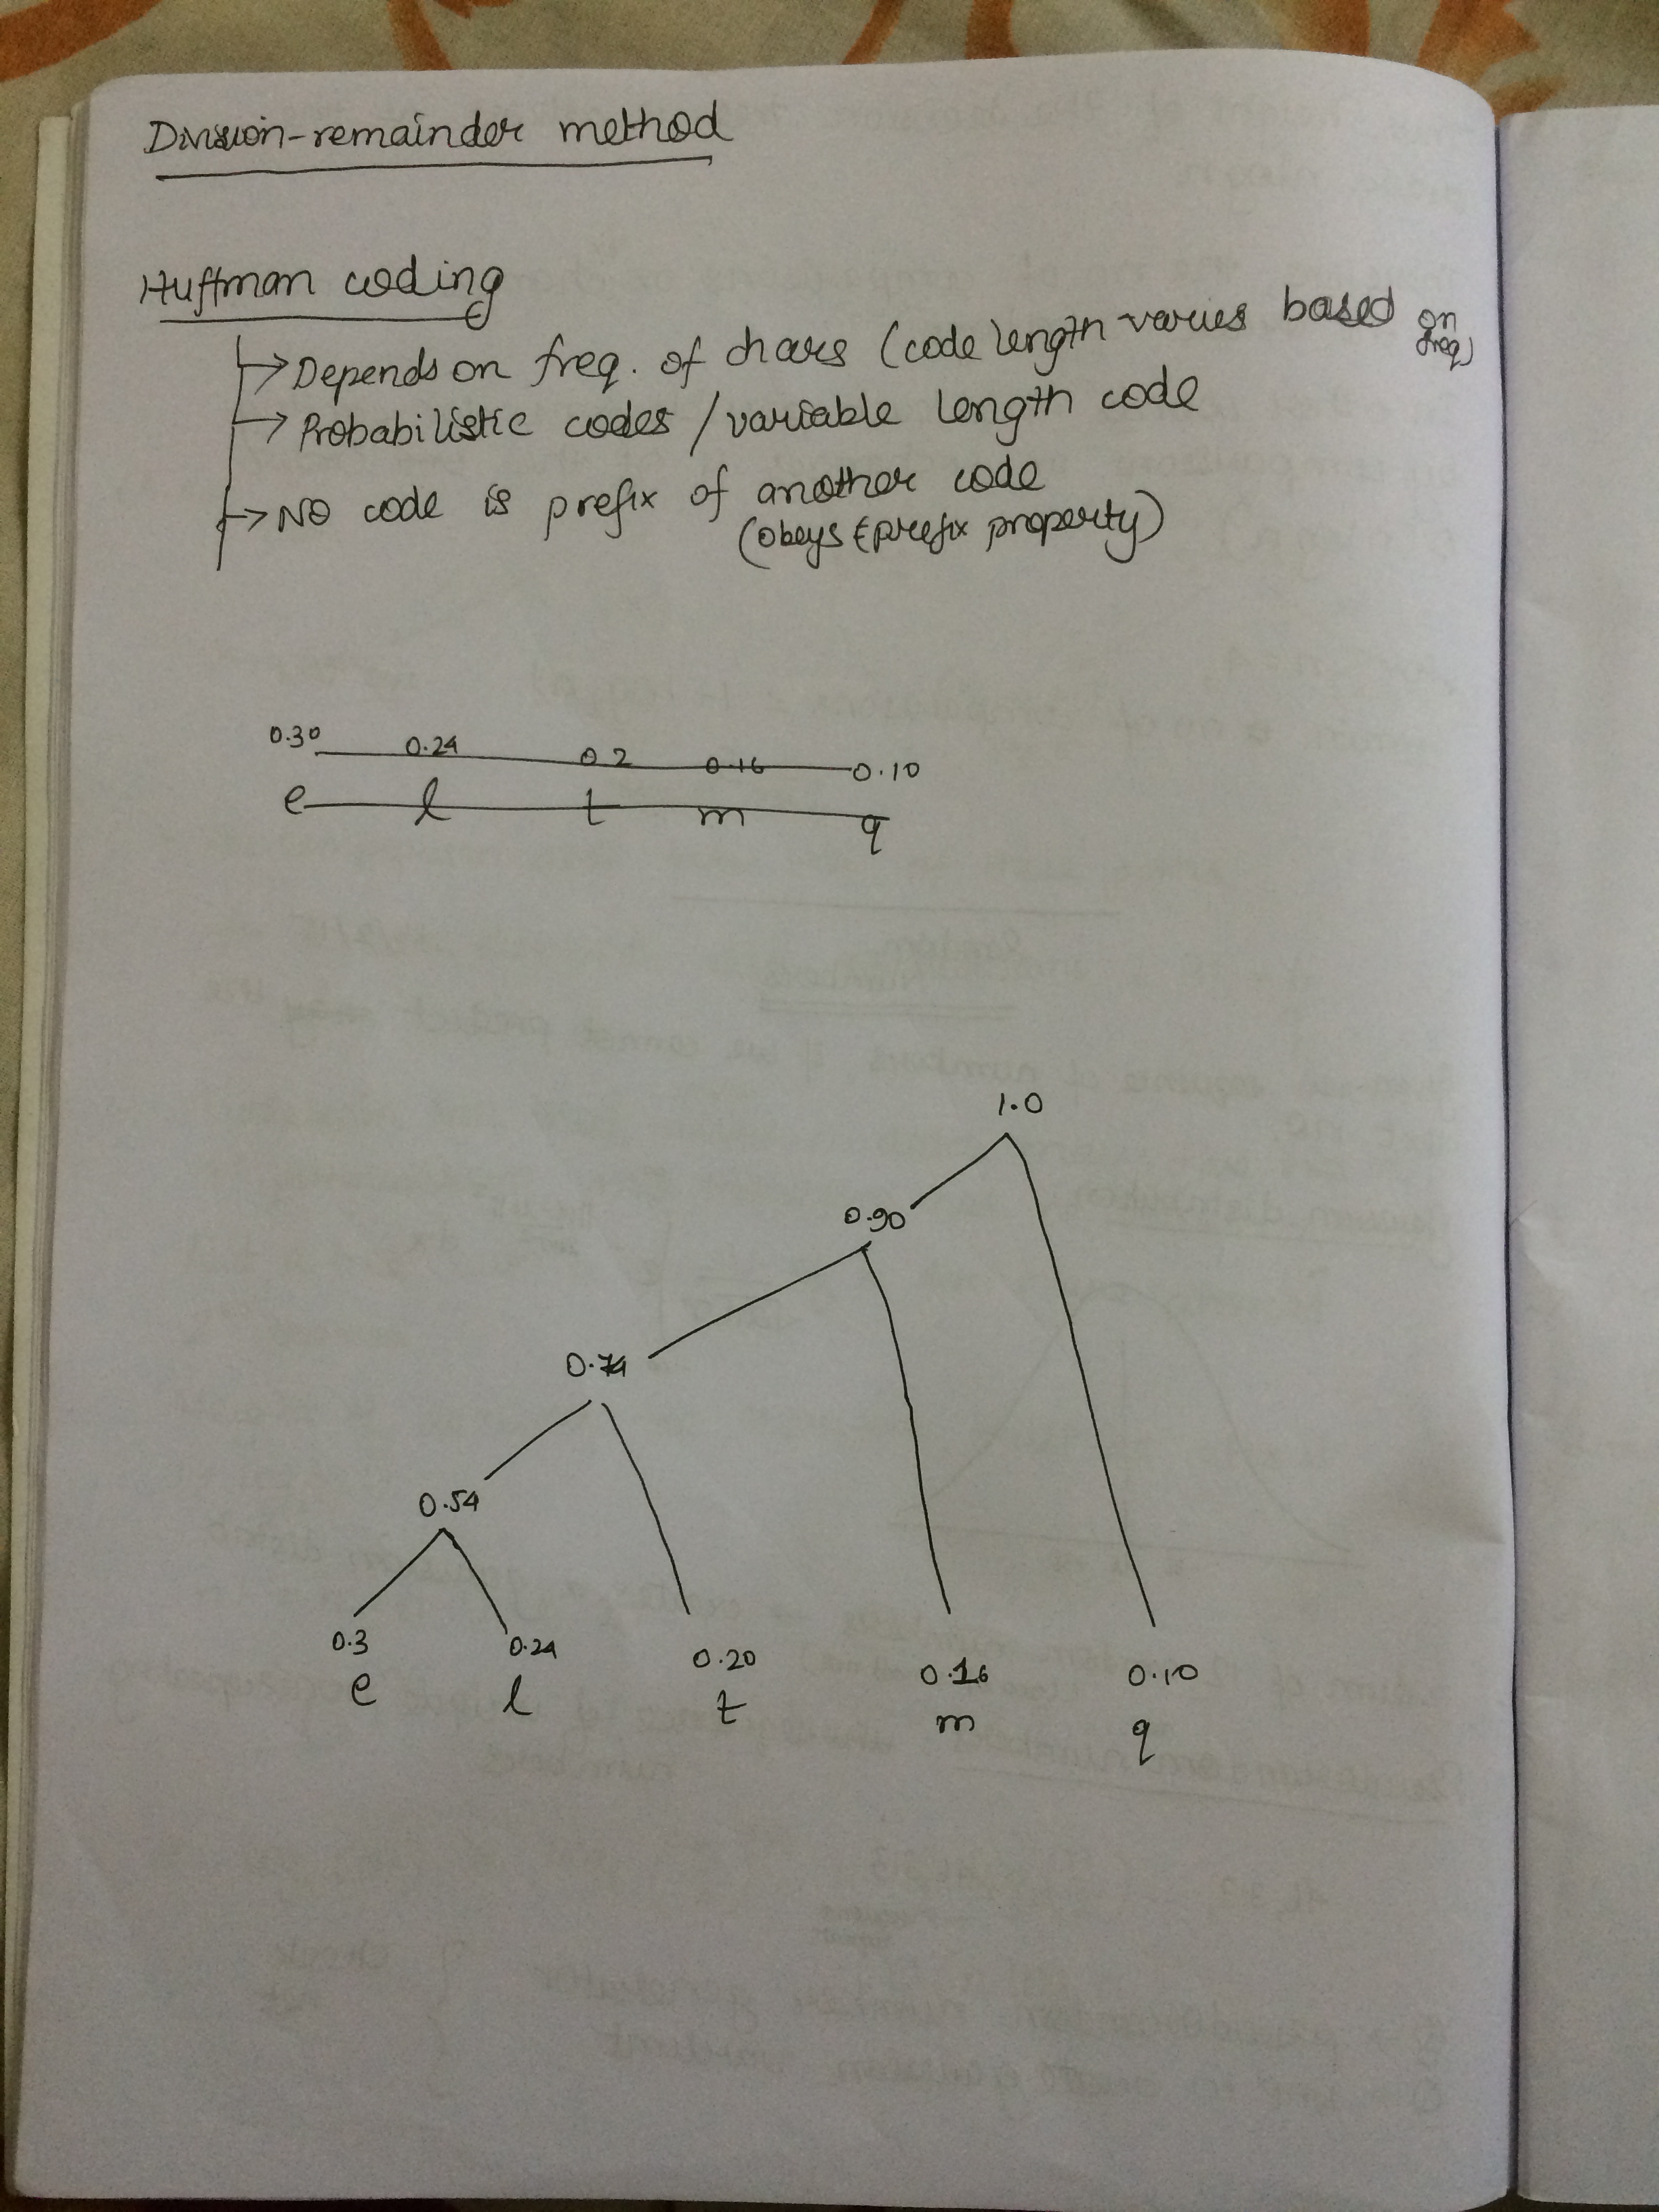 Division-remainder method
Huffman coding
→ Depends on freq. of chars (code length varies based on freq)
→ Probabilistic codes / variable length code
→ No code is prefix of another code
(obeys prefix property)
0.30 0.24 0.2 0.16 0.10
e l t m q
1.0
0.90
0.74
0.54
0.3 0.24 0.20 0.16 0.10
e l t m q